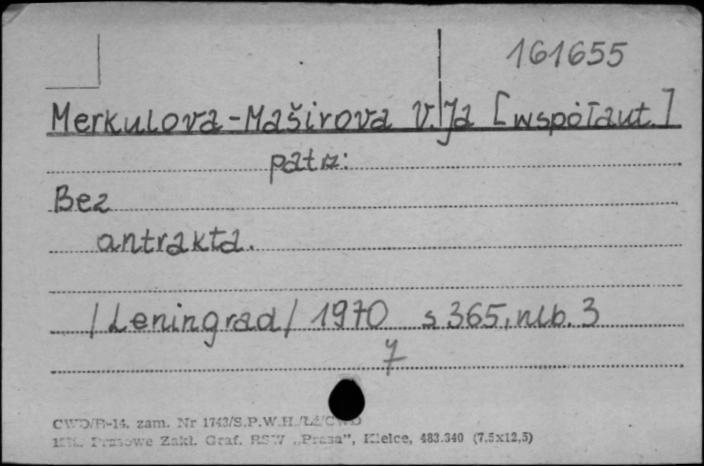 161655
Merkulova-Maširova V. Ja [współaut.]
patrz:
Bez
antrakta.
/Leningrad/ 1970 s 365, nlb. 3
7
CWD/B-14. zam. Nr 1743/S.P.W.H./Łź/CWD
Prasowe Zakł. Graf. RSW „Prasa”, Kielce, 483.340 (7,5x12,5)